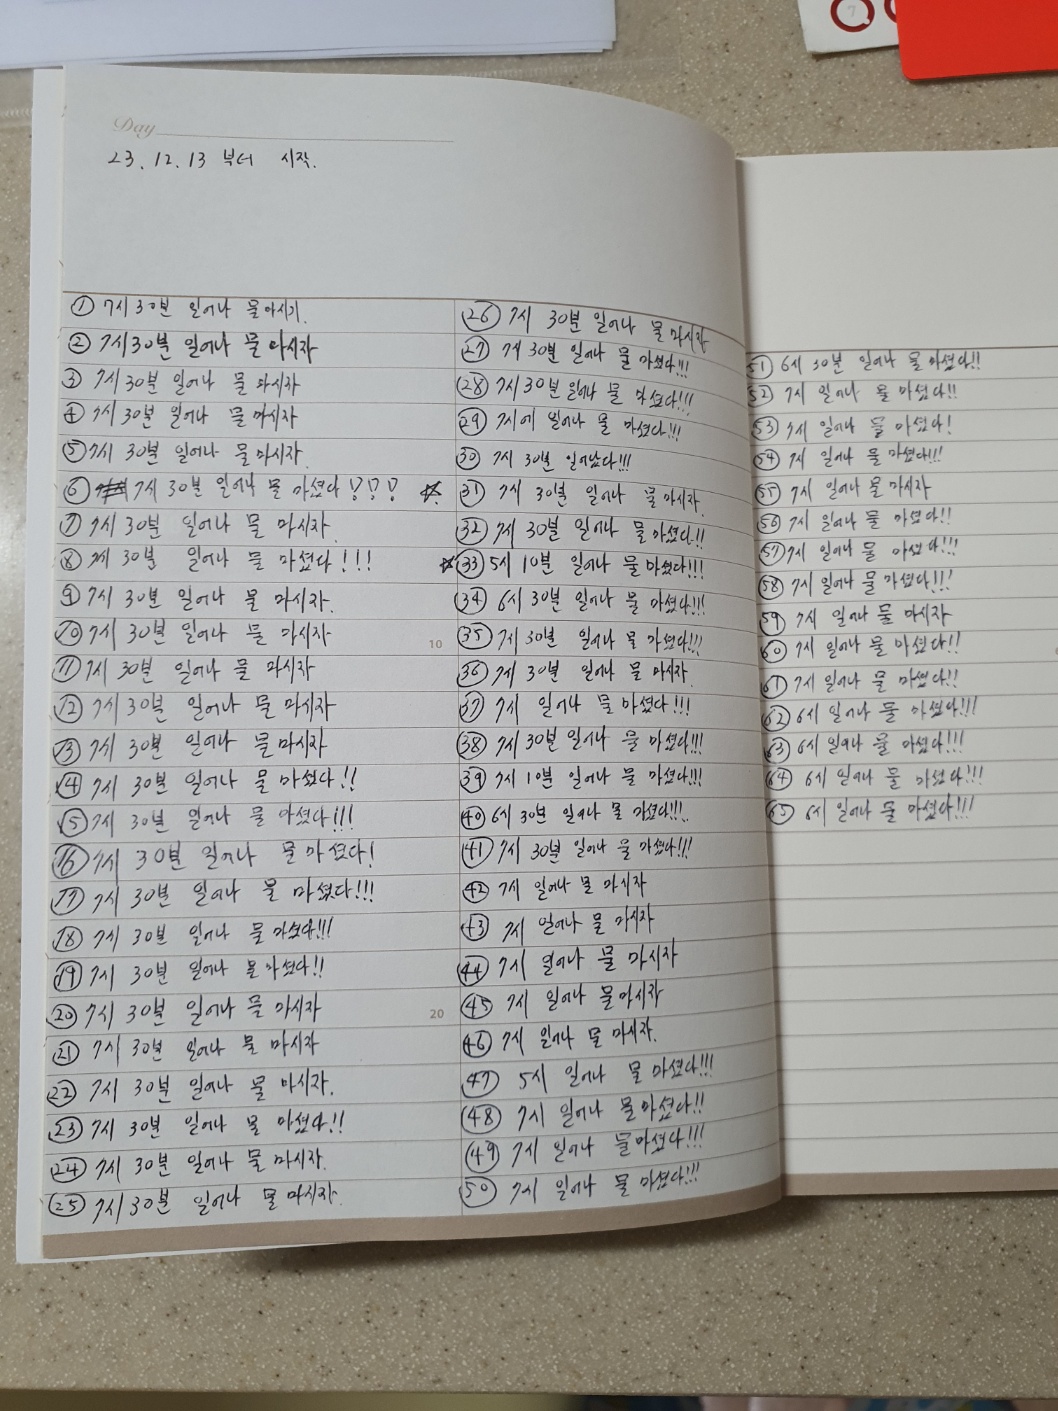 Day
23. 12. 13 부터 시작.
① 7시 30분 일어나 물마시기.
② 7시 30분 일어나 물 마시자
③ 7시 30분 일어나 물 마시자
④ 7시 30분 일어나 물 마시자
⑤ 7시 30분 일어나 물 마시자.
⑥ 7시 30분 일어나 물 마셨다!!!
⑦ 7시 30분 일어나 물 마시자.
⑧ 7시 30분 일어나 물 마셨다!!!
⑨ 7시 30분 일어나 물 마시자.
⑩ 7시 30분 일어나 물 마시자
⑪ 7시 30분 일어나 물 마시자
⑫ 7시 30분 일어나 물 마시자
⑬ 7시 30분 일어나 물 마시자
⑭ 7시 30분 일어나 물 마셨다!!
⑮ 7시 30분 일어나 물 마셨다!!!
⑯ 7시 30분 일어나 물 마셨다!
⑰ 7시 30분 일어나 물 마셨다!!!
⑱ 7시 30분 일어나 물 마셨다!!!
⑲ 7시 30분 일어나 물 마셨다!!
⑳ 7시 30분 일어나 물 마시자
㉑ 7시 30분 일어나 물 마시자
㉒ 7시 30분 일어나 물 마시자.
㉓ 7시 30분 일어나 물 마셨다!!
㉔ 7시 30분 일어나 물 마시자.
㉕ 7시 30분 일어나 물 마시자.
10
20
㉖ 7시 30분 일어나 물 마시자
㉗ 7시 30분 일어나 물 마셨다!!!
㉘ 7시 30분 일어나 물 마셨다!!!
㉙ 7시에 일어나 물 마셨다!!!
㉚ 7시 30분 일어났다!!!
☆ ㉛ 7시 30분 일어나 물 마시자.
㉜ 7시 30분 일어나 물 마셨다!!
☆ ㉝ 5시 10분 일어나 물 마셨다!!!
㉞ 6시 30분 일어나 물 마셨다!!!
㉟ 7시 30분 일어나 물 마셨다!!!
㊱ 7시 30분 일어나 물 마시자.
㊲ 7시 일어나 물 마셨다!!!
㊳ 7시 30분 일어나 물 마셨다!!!
㊴ 7시 10분 일어나 물 마셨다!!!
㊵ 6시 30분 일어나 물 마셨다!!!
㊶ 7시 30분 일어나 물 마셨다!!!
㊷ 7시 일어나 물 마시자
㊸ 7시 일어나 물 마시자
㊹ 7시 일어나 물 마시자
㊺ 7시 일어나 물 마시자
㊻ 7시 일어나 물 마시자.
㊼ 5시 일어나 물 마셨다!!!
㊽ 7시 일어나 물 마셨다!!
㊾ 7시 일어나 물 마셨다!!!
㊿ 7시 일어나 물 마셨다!!!
51 6시 30분 일어나 물 마셨다!!
52 7시 일어나 물 마셨다!!
53 7시 일어나 물 마셨다!
54 7시 일어나 물 마셨다!!!
55 7시 일어나 물 마시자
56 7시 일어나 물 마셨다!!
57 7시 일어나 물 마셨다!!!
58 7시 일어나 물 마셨다!!!
59 7시 일어나 물 마시자
60 7시 일어나 물 마셨다!!
61 7시 일어나 물 마셨다!!
62 6시 일어나 물 마셨다!!!
63 6시 일어나 물 마셨다!!!
64 6시 일어나 물 마셨다!!!
65 6시 일어나 물 마셨다!!!